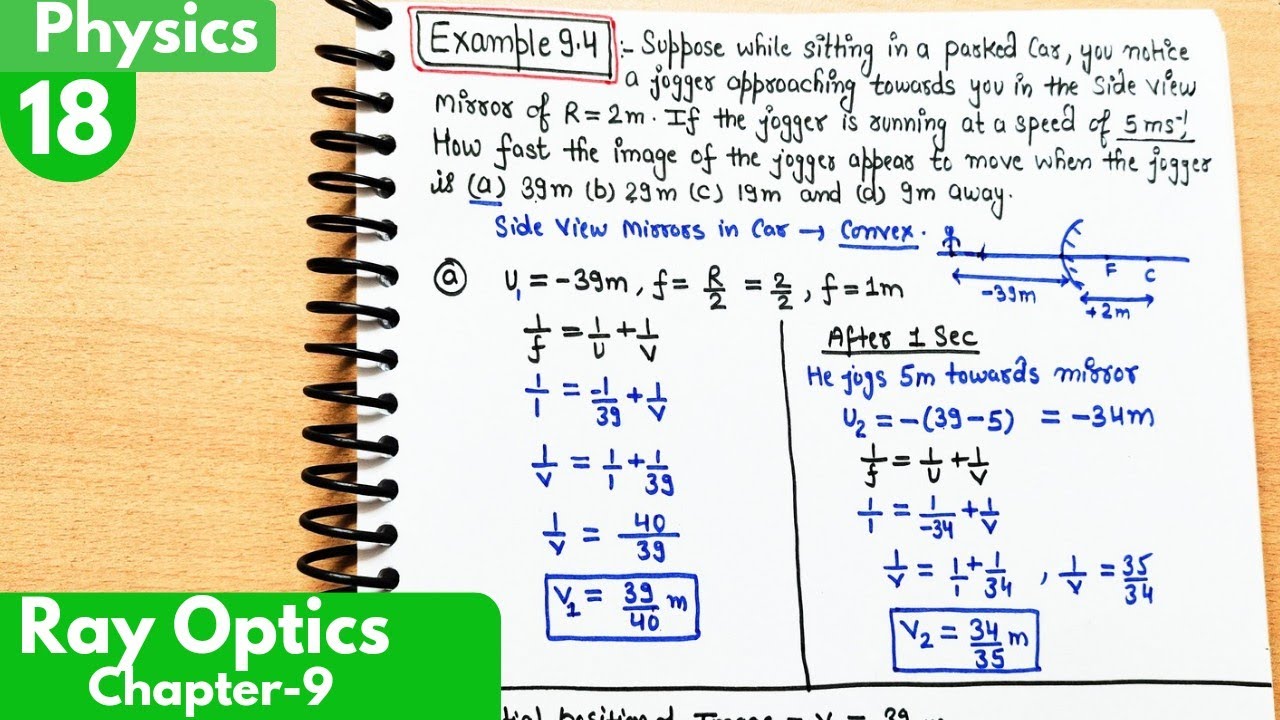 Physics
18
Example 9.4 :- Suppose while sitting in a parked Car, you notice
a jogger approaching towards you in the Side View
Mirror of R = 2m. If the jogger is running at a speed of 5ms⁻¹
How fast the image of the jogger appear to move when the jogger
is (a) 39m (b) 29m (c) 19m and (d) 9m away.
Side View Mirrors in Car → Convex.
F C
-39m
+2m
(a) U₁ = -39m, f = R/2 = 2/2, f = 1m
1/f = 1/U + 1/V
1/1 = -1/39 + 1/V
1/V = 1/1 + 1/39
1/V = 40/39
V₁ = 39/40 m
After 1 Sec
He jogs 5m towards mirror
U₂ = -(39-5) = -34m
1/f = 1/U + 1/V
1/1 = 1/-34 + 1/V
1/V = 1/1 + 1/34, 1/V = 35/34
V₂ = 34/35 m
Ray Optics
Chapter-9